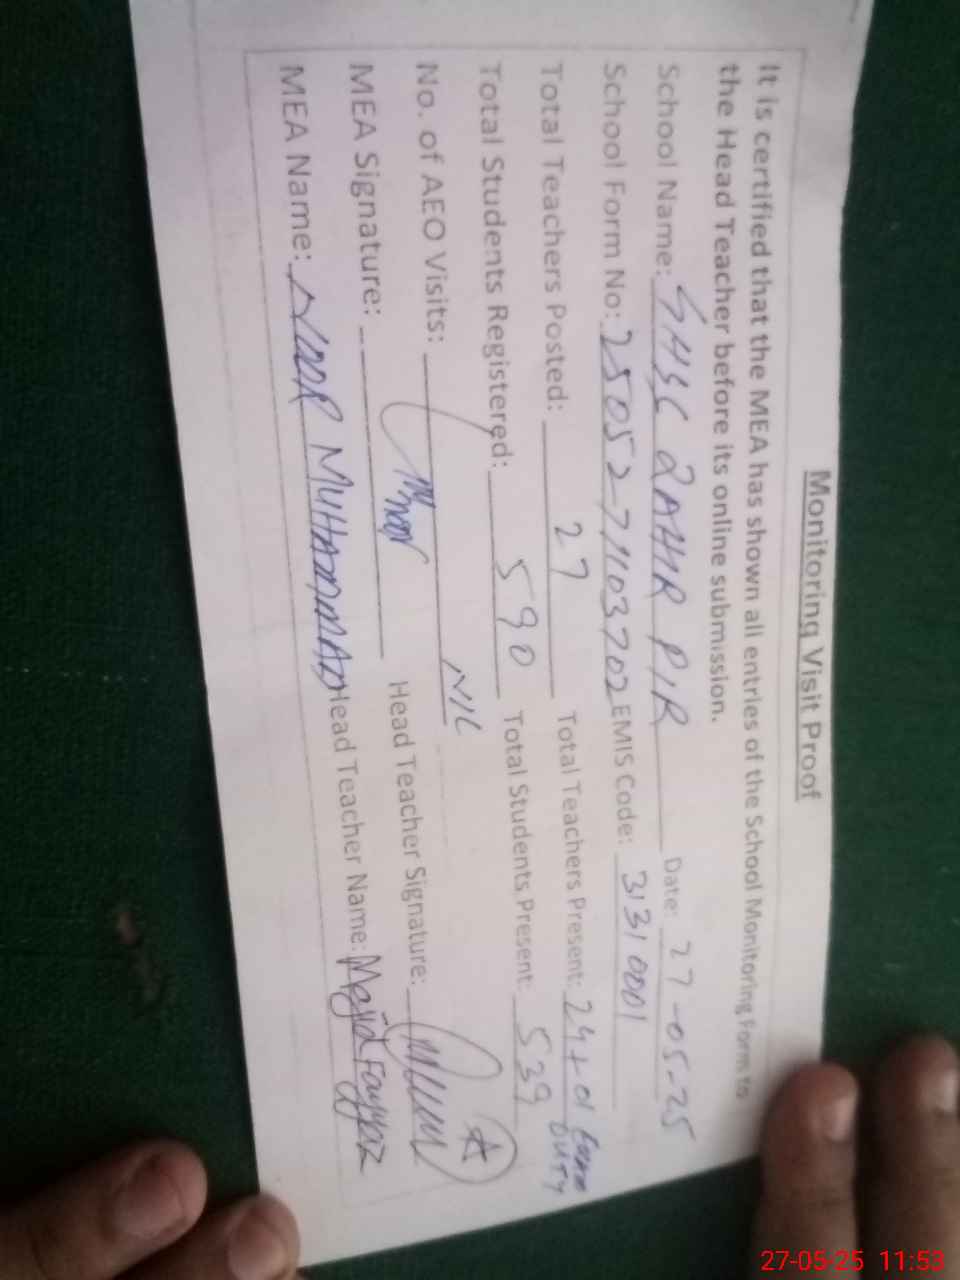 Monitoring Visit Proof
It is certified that the MEA has shown all entries of the School Monitoring Form to
the Head Teacher before its online submission.
School Name: GHSS ZAHIR PIR Date: 27-05-25
School Form No: 25052-71103702 EMIS Code: 31310001
Total Teachers Posted: 27 Total Teachers Present: 24+01 DUTY
Total Students Registered: 590 Total Students Present: 539
No. of AEO Visits: NIL A
MEA Signature: Head Teacher Signature:
MEA Name: NOOR MUHAMMAD Head Teacher Name: Majid Fayyaz
27-05-25 11:53